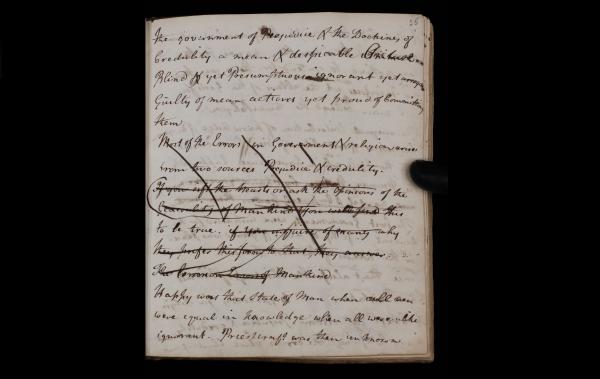 26
The government of Prejudice & the Doctrines of
Credulity a mean & despicable
Blind & yet Presumptuous ignorant yet
Guilty of mean actions yet proud of Committing
them
Most of the Errors in Government & religion arise
from two sources Prejudice & credulity.
If you the hearts or ask the Opinions of the
Generality of Mankind You will find this
to be true. if you inquire of many why
they prefer this form to that, they answer
The Common Errors of Mankind.
Happy was that State of Man when all men
were equal in knowledge when all were alike
ignorant. Priestcraft was then unknown